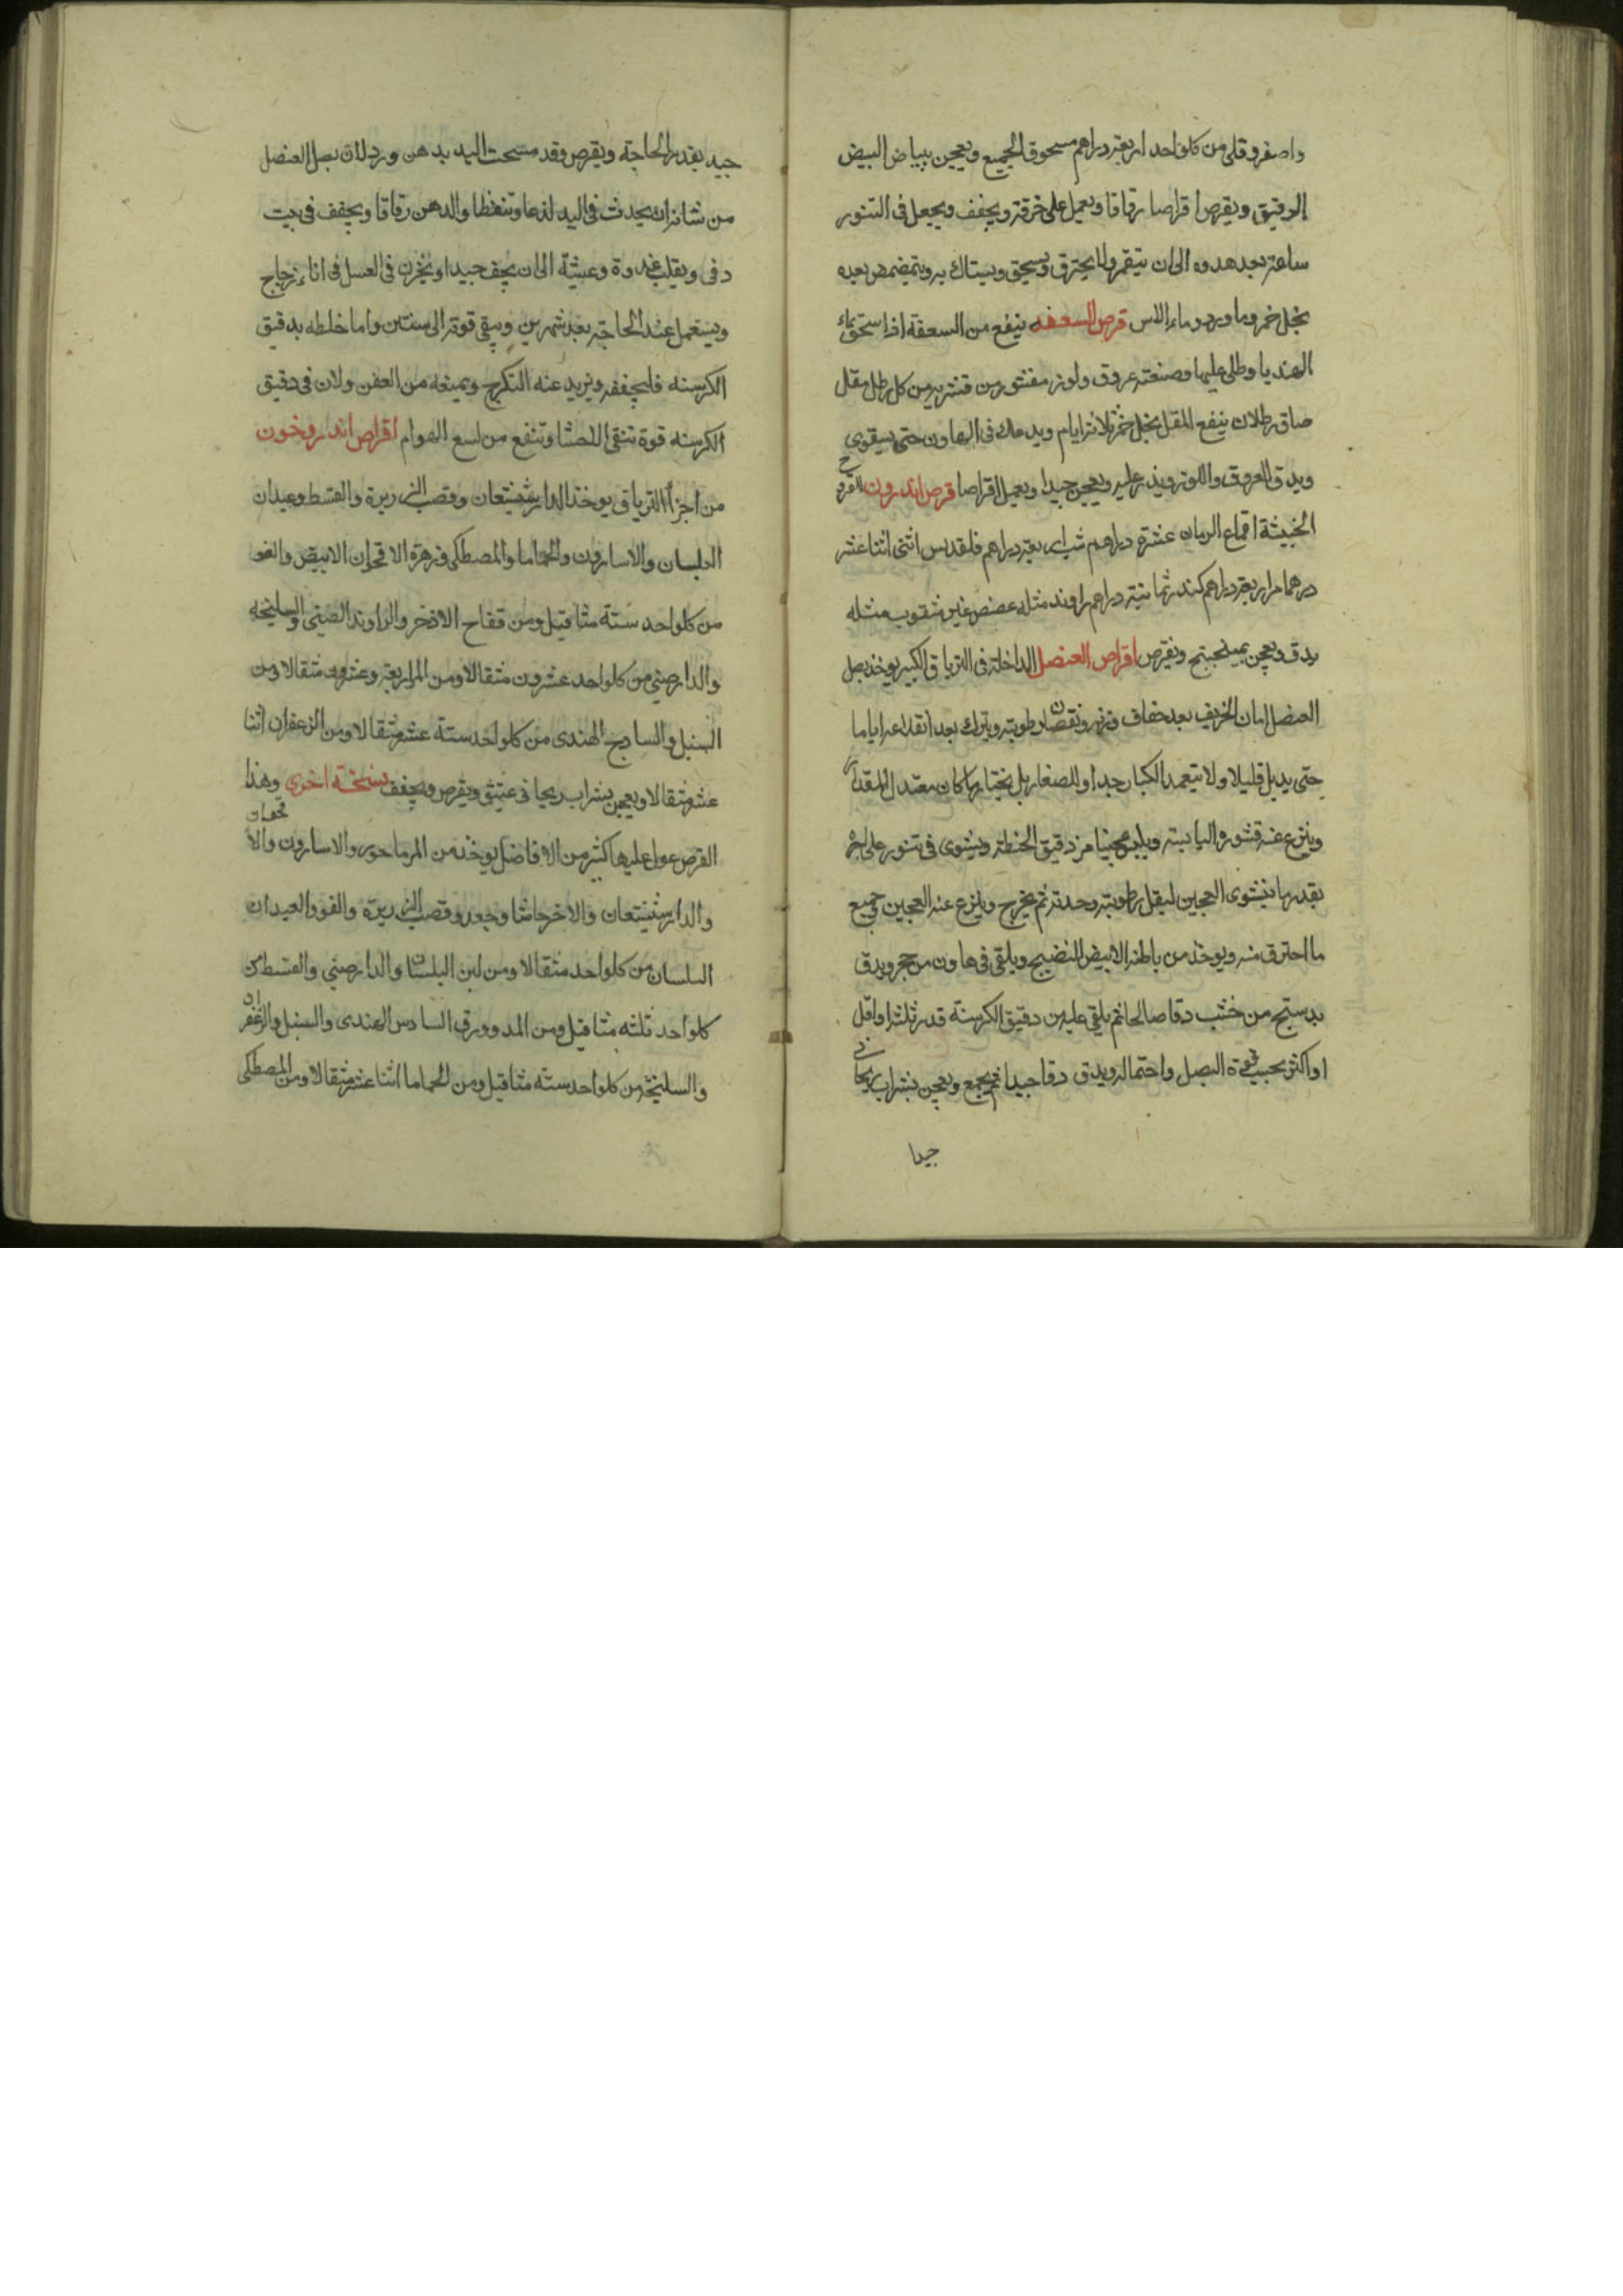 واصفر وقلى من كلواحد اربعة دراهم مسحوق الجميع ويعجن ببياض البيض
الرقيق ويقرص اقراصا رقاقا ويعمل على خرقة ويجفف ويجعل فى التنور
ساعة بعد هدوه الى ان يتقمر ولا يحترق ويسحق ويستاك به ويتمضمض بعده
بخل خمر وماورد وماء الاس قرص السعفه ينفع من السعفة اذا سحق بماء
الهنديا وطلى عليها وصنعته عروق ولوز مقشور من قشريه من كل رطل مقل
صاف رطلان ينقع المقل بخل خمر ثلاثة ايام ويدعك فى الهاون حتى يستوى
ويدق العروق واللوز ويذر عليه ويعجن جيدا ويعمل اقراصا قرص اندرون للقروح
الخبيثة اقماع الرمان عشرة دراهم شب اربعة دراهم قلقديس اثنى اثنا عشر
درهما مر اربعة دراهم كندر ثمانية دراهم راوند مثله عفص غير مثقوب مثله
يدق ويعجن بميبختج ويقرص اقراص العنصل الداخلة فى الترياق الكبير يوخذ بصل
العنصل ابان الخريف بعد جفاف ونقصان رطوبته ويترك بعد انقلاعه اياما
حتى يذبل قليلا ولا يتعمد الكبار جدا ولا الصغار بل يختار ما كان معتدل المقدار
وينزع عنه قشوره اليابسة ويلبس عجينا من دقيق الحنطة ويشوى فى تنور على اجرة
بقدر ما ينشوى العجين ليقل رطوبته وحدته ثم يخرج وينزع عنه العجين وجميع
ما احترق منه ويوخذ من باطنه الابيض النضيج ويلقى فى هاون من حجر ويدق
بدستج من خشب دقا صالحا ثم يلقى عليه من دقيق الكرسنة قدر ثلثه او اقل
او اكثر بحسب قوة البصل واحتماله ويدق دقا جيدا ثم يجمع ويعجن بشراب ريحانى
جيدا
جيد بقدر الحاجة ويقرص وقد مسحت اليد بدهن ورد لان بصل العنصل
من شانه ان يحدث فى اليد لذعا وتنفطا والدهن رقاقا ويجفف فى بيت
دفى ويقلب غدوة وعشية الى ان يجف جيدا ويخزن فى العسل فى اناء زجاج
ويستعمل عند الحاجة بعد شهرين ويبقى قوته الى سنتين واما خلطه بدقيق
الكرسنه فليجففه ويزيد عنه التكرج ويمنعه من العفن ولان فى دقيق
الكرسنه قوة تنقى الاحشا وتنفع من لسع الهوام اقراص اندروخون
من اجزاء الترياق يوخذ الدارشيشعان وقصب الذريرة والقسط وعيدان
البلسان والاسارون والحماما والمصطكى وزهرة الاقحوان الابيض والفو
من كلواحد ستة مثاقيل ومن فقاح الاذخر والراوند الصينى والسليخه
والدارصينى من كلواحد عشرون مثقالا ومن المر اربعة وعشرون مثقالا ومن
السنبل والسادج الهندى من كلواحد ستة عشر مثقالا ومن الزعفران اثنا
عشر مثقالا ويعجن بشراب ريحانى عتيق ويقرص ويجفف نسخة اخرى وهذا
القرص عول عليها كثير من الافاضل يوخذ من المرماحور والاسارون والاقحوان
والدارشيشعان والاذخر حاشا وجعد وقصب الذريرة والفو والعيدان
البلسان من كلواحد مثقالا ومن لبن البلسان والدارصينى والقسط من
كلواحد ثلثه مثاقيل ومن المر وورق السادس الهندى والسنبل والزعفران
والسليخة من كلواحد سته مثاقيل ومن الحماما اثنا عشر مثقالا ومن المصطكى